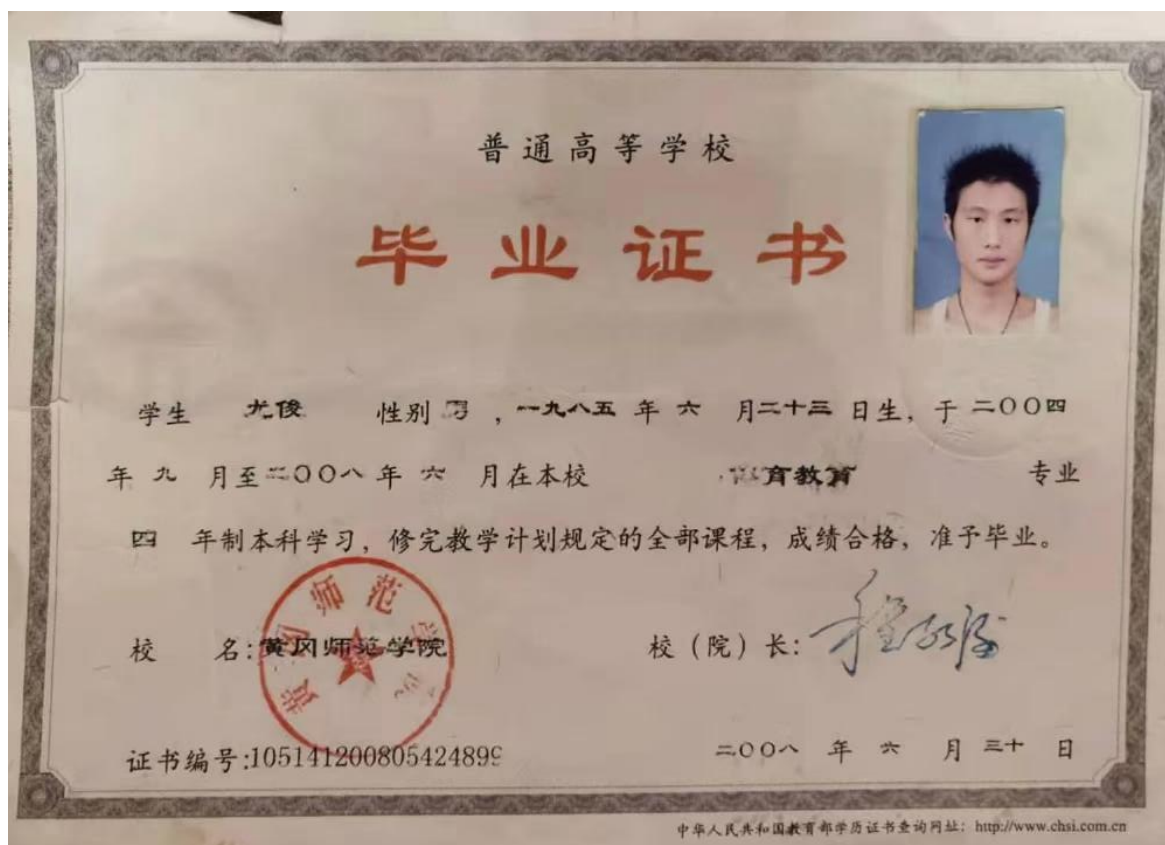 普通高等学校
毕业证书
学生 尤俊 性别 男，一九八五 年 六 月二十三 日生，于 二〇〇四
年 九 月至二〇〇八 年 六 月在本校 体育教育 专业
四 年制本科学习，修完教学计划规定的全部课程，成绩合格，准予毕业。
黄冈师范学院
校 名：黄冈师范学院 校（院）长：
证书编号:105141200805424899 二〇〇八 年 六 月 三十 日
中华人民共和国教育部学历证书查询网址：http://www.chsi.com.cn